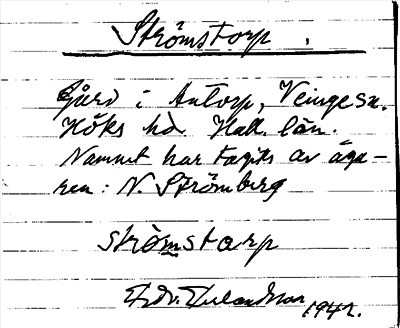 Strömstorp.
Gård i Antorp, Veinge sn.
Höks hd Hall. län.
Namnet har tagits av äga-
ren: N. Strömberg
strömstorp
1942.